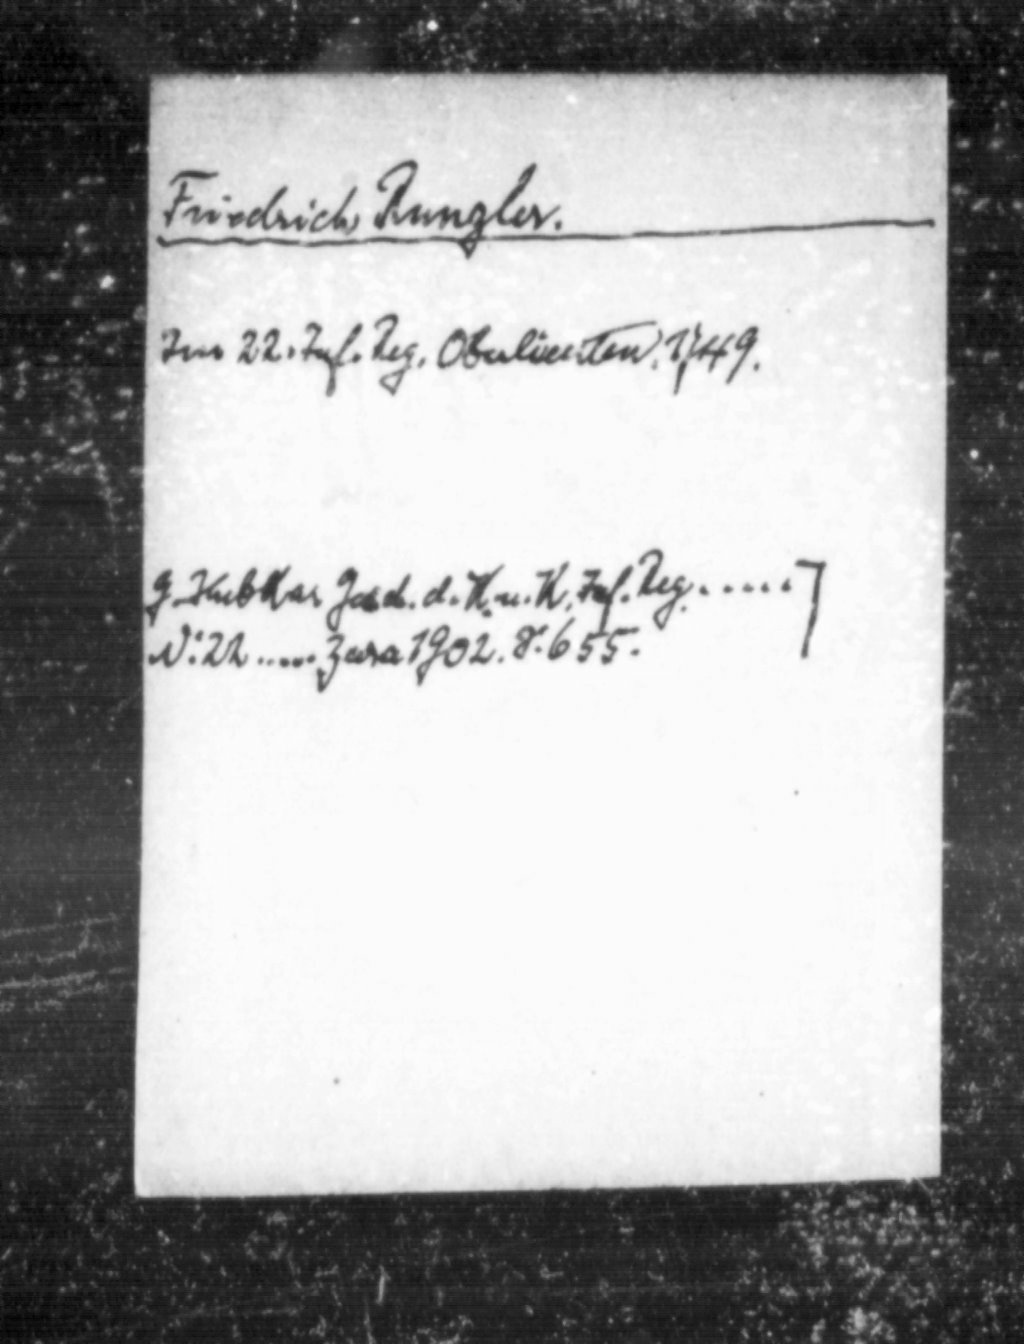 Friedrich Rungler.
Im 22. Inf. Reg. Oberlieutenn. 1749.
G. Hubka: Gesch. d. K. u. K. Inf. Reg. .....
Nr. 22 ..... Zara 1902. S. 655.